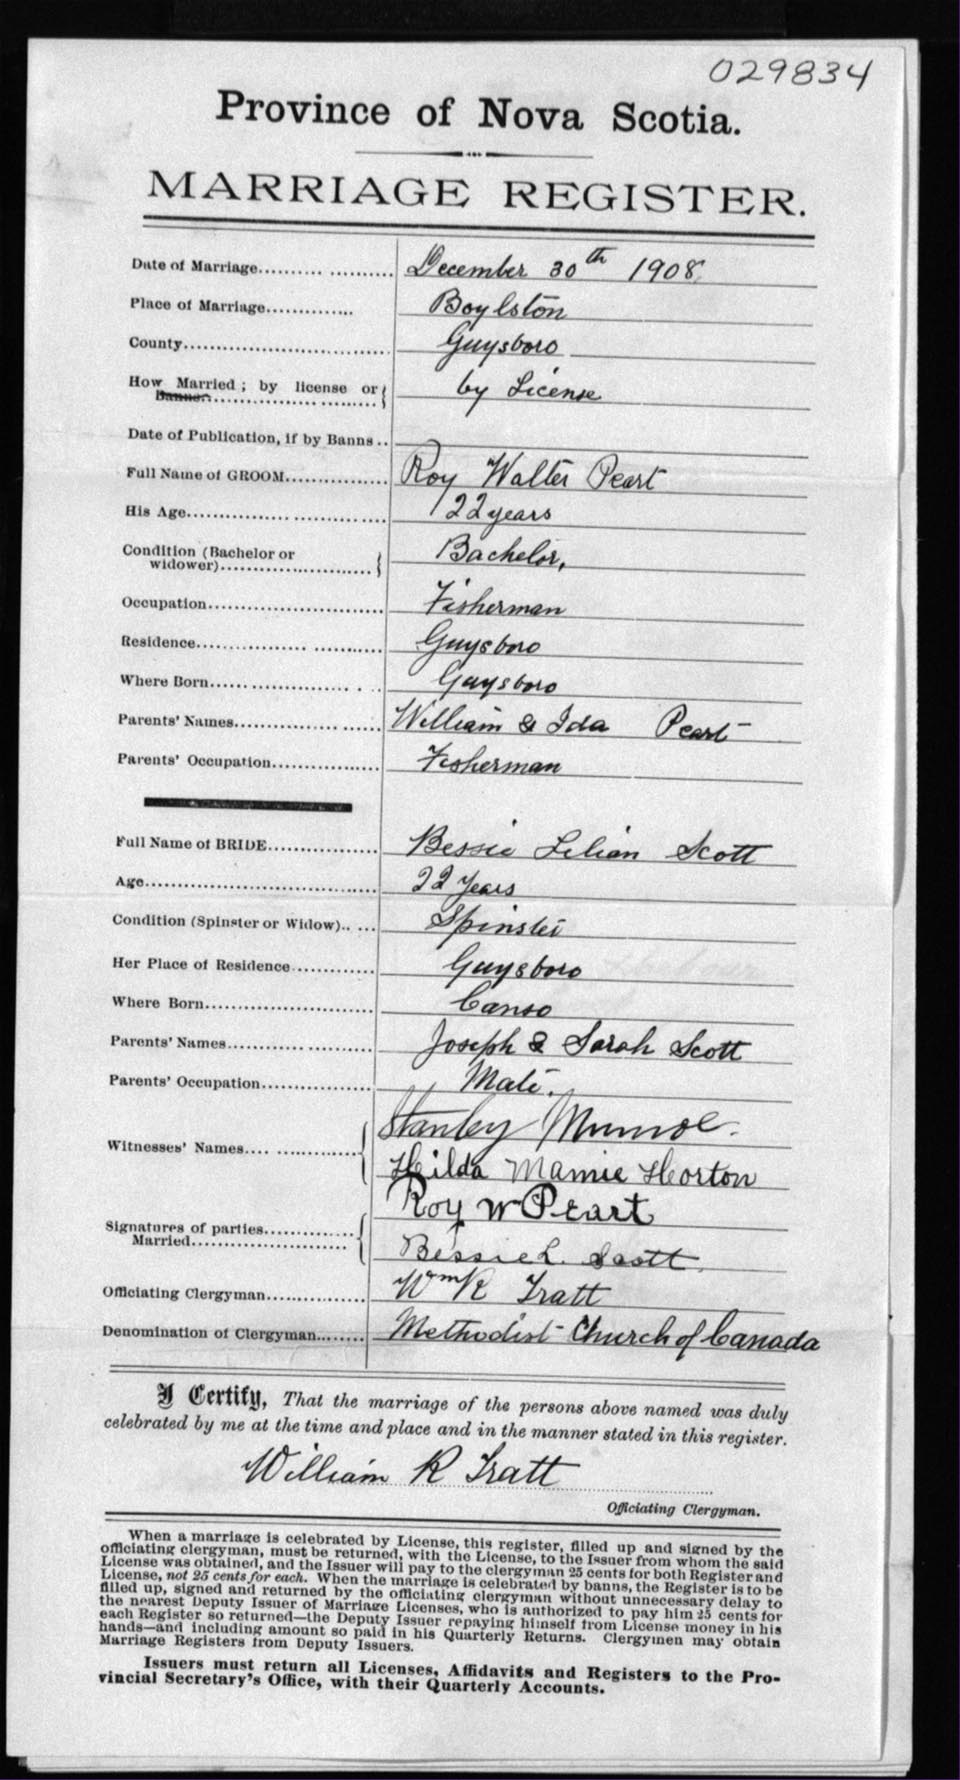 029834
Province of Nova Scotia.
MARRIAGE REGISTER.
Date of Marriage.......... ........... December 30th 1908.
Place of Marriage.............. Boylston
County................................... Guysboro
How Married ; by license or { by License
Banns.................. ...........
Date of Publication, if by Banns ..
Full Name of GROOM................. Roy Walter Peart
His Age................................... 22 years
Condition (Bachelor or { Bachelor,
widower)..........................
Occupation............................... Fisherman
Residence................. ........... Guysboro
Where Born...................... . .. Guysboro
Parents' Names................. ...... William & Ida Peart
Parents' Occupation................. Fisherman
Full Name of BRIDE................. Bessie Lilian Scott
Age........................................ 22 Years
Condition (Spinster or Widow).. .... Spinster
Her Place of Residence.............. Guysboro
Where Born........................... Canso
Parents' Names.......... ........... Joseph & Sarah Scott
Parents' Occupation................. Mate.
Witnesses' Names.... .............. { Stanley Munroe.
Hilda Mamie Horton
Signatures of parties.............. { Roy W Peart
Married............................ Bessie L. Scott.
Officiating Clergyman................. Wm R Tratt
Denomination of Clergyman........ Methodist Church of Canada
I Certify, That the marriage of the persons above named was duly
celebrated by me at the time and place and in the manner stated in this register.
William R Tratt
Officiating Clergyman.
When a marriage is celebrated by License, this register, filled up and signed by the
officiating clergyman, must be returned, with the License, to the Issuer from whom the said
License was obtained, and the Issuer will pay to the clergyman 25 cents for both Register and
License, not 25 cents for each. When the marriage is celebrated by banns, the Register is to be
filled up, signed and returned by the officiating clergyman without unnecessary delay to
the nearest Deputy Issuer of Marriage Licenses, who is authorized to pay him 25 cents for
each Register so returned—the Deputy Issuer repaying himself from License money in his
hands—and including amount so paid in his Quarterly Returns. Clergymen may obtain
Marriage Registers from Deputy Issuers.
Issuers must return all Licenses, Affidavits and Registers to the Pro-
vincial Secretary's Office, with their Quarterly Accounts.